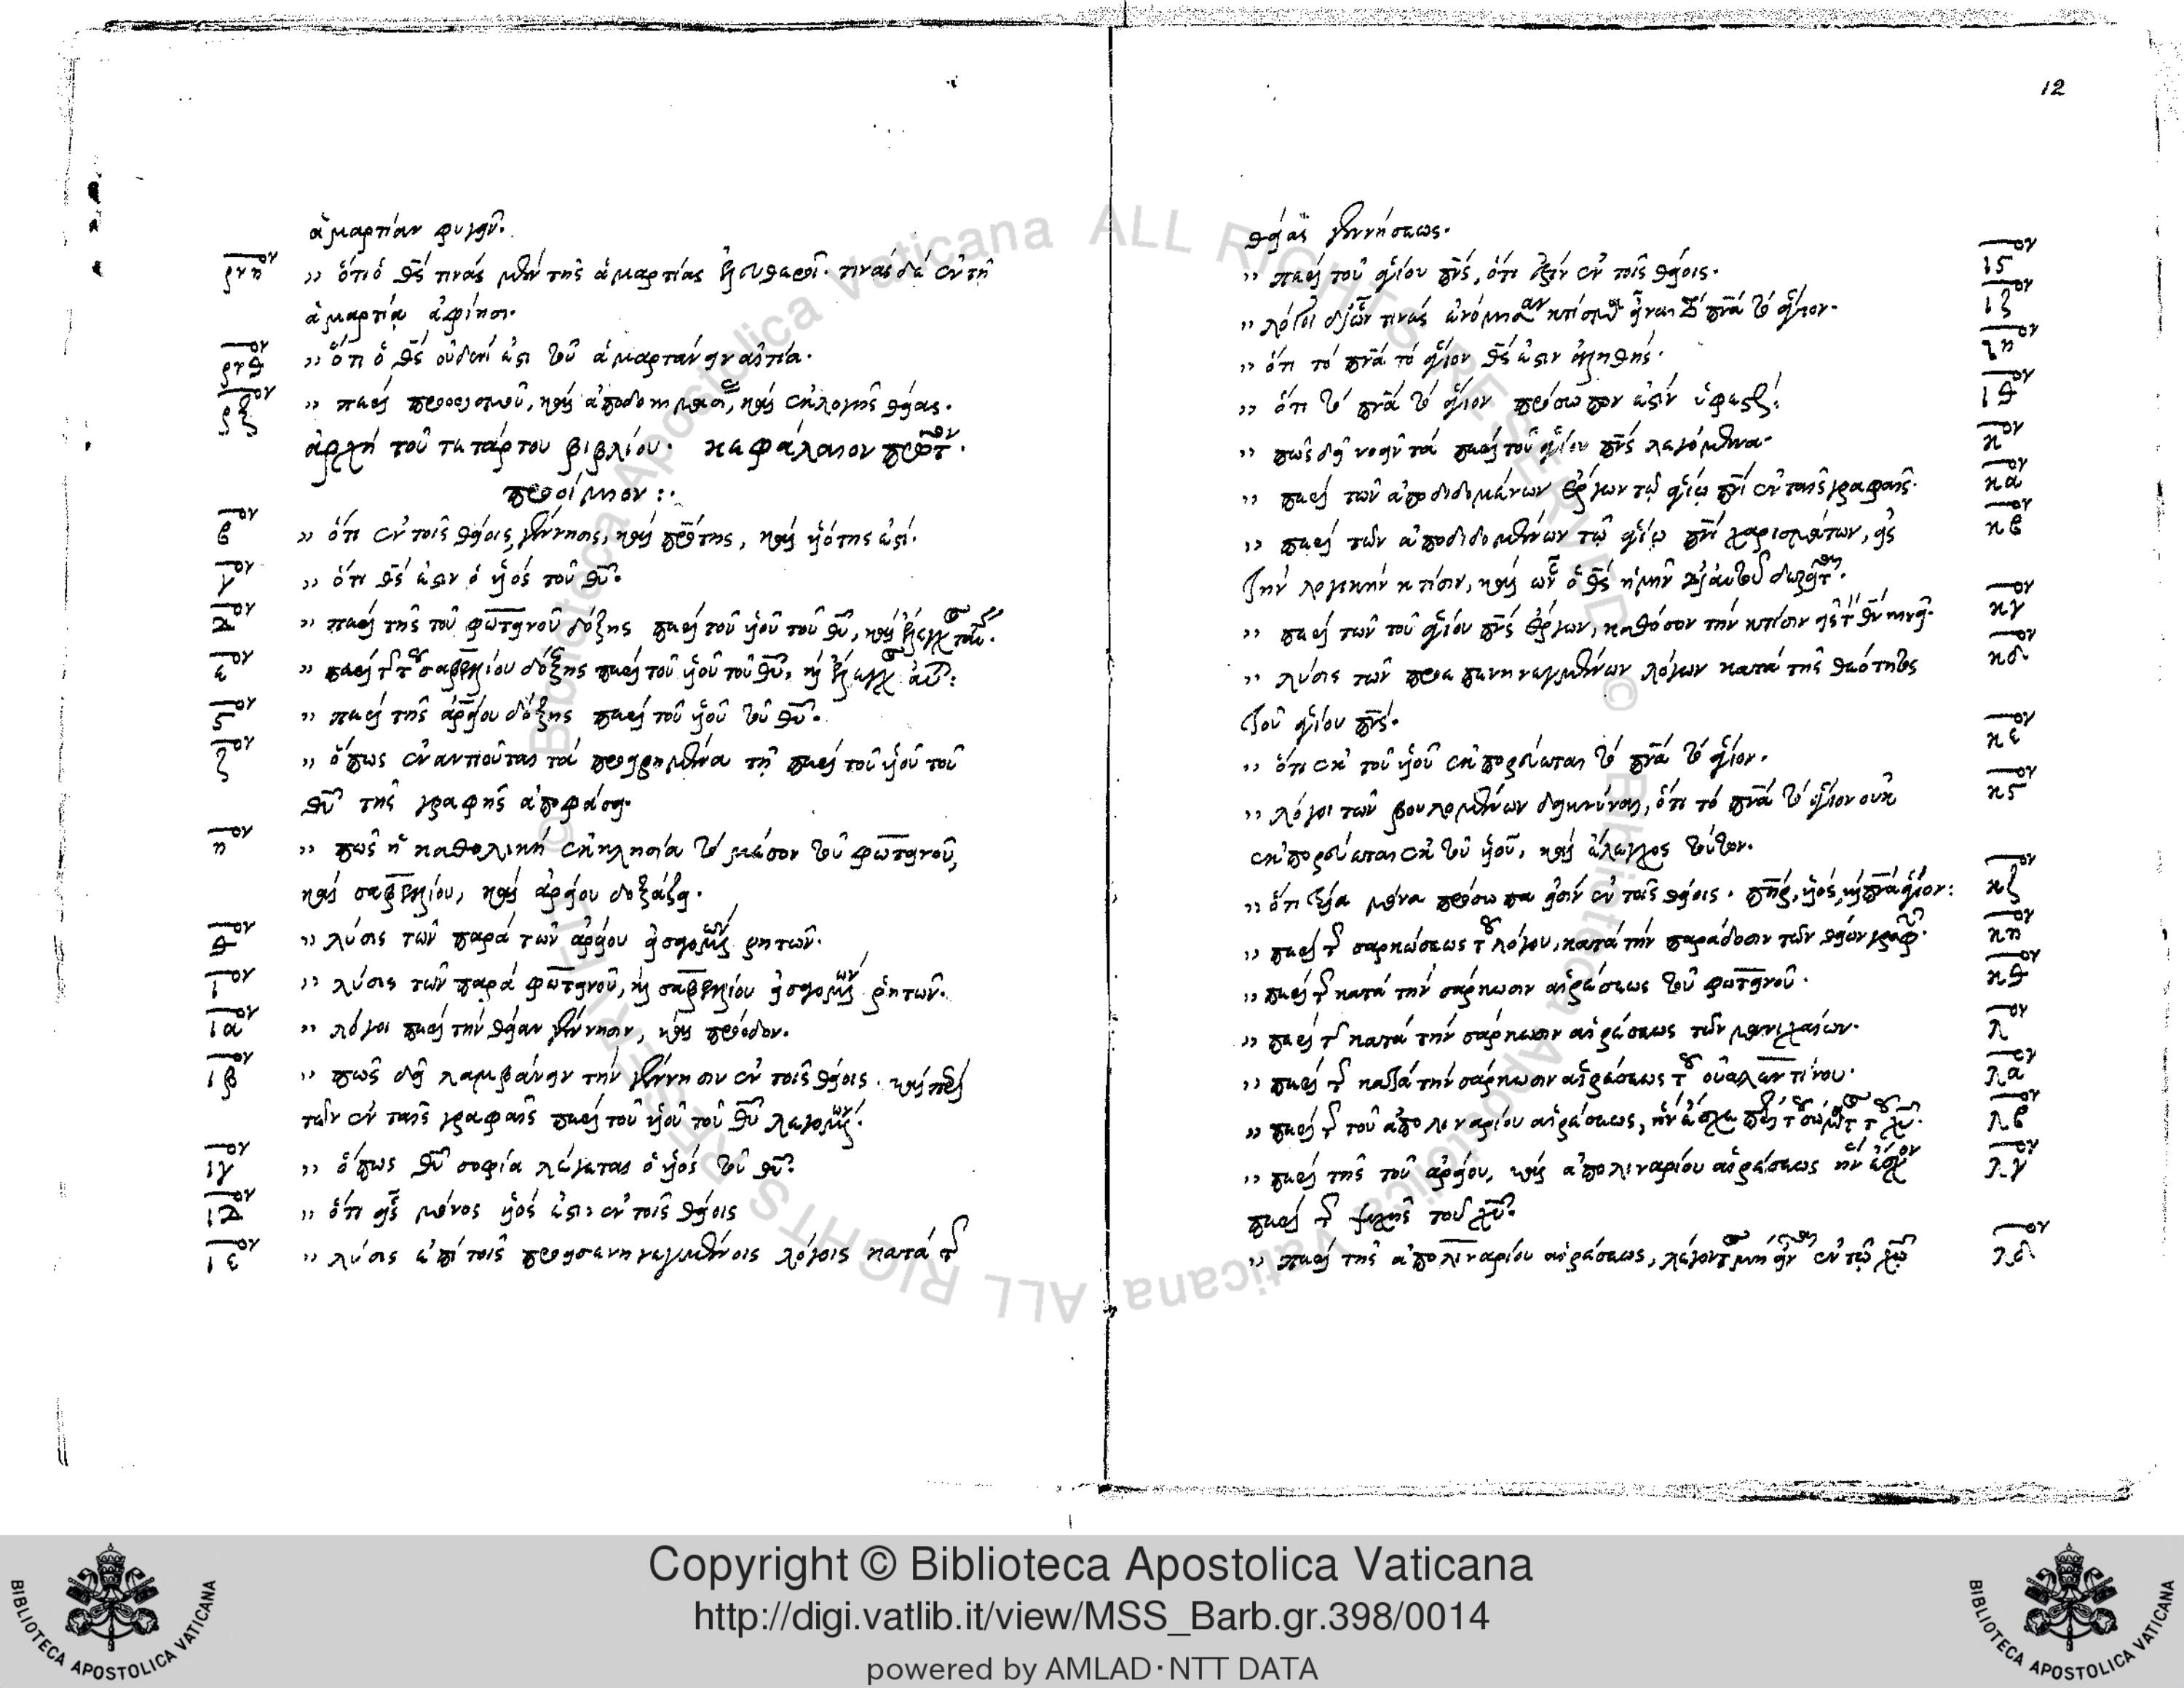 ἁμαρτίαν φυγεῖν.
ρνη^ον ,, ὅτι ὁ θς τινάς μὲν τῆς ἁμαρτίας ἐλευθεροῖ. τινάς δὲ ἐν τῇ
ἁμαρτίᾳ ἀφίησι.
ρνθ^ον ,, ὅτι ὁ θς οὐδενί ἐστι τοῦ ἁμαρτάνειν αἰτία.
ρξ^ον ,, περὶ προορισμοῦ, καὶ ἀποδοκιμασί, καὶ ἐκλογῆς θείας.
ἀρχὴ τοῦ τετάρτου βιβλίου. κεφάλαιον πρῶτ^ον.
προοίμιον :.
β^ον ,, ὅτι ἐν τοῖς θείοις γέννησις, καὶ πρότης, καὶ υἱότης ἐστί.
γ^ον ,, ὅτι θς ἐστιν ὁ υἱός τοῦ θυ.
δ^ον ,, περὶ τῆς τοῦ φωτεινοῦ δόξης περὶ τοῦ υἱοῦ τοῦ θυ, καὶ ἔλεγχ ταυ.
ε^ον ,, περὶ τ τ σαβελλίου δόξης περὶ τοῦ υἱοῦ τοῦ θυ, καὶ ἔλεγχ αὐ:
ς^ον ,, περὶ τῆς ἀρείου δόξης περὶ τοῦ υἱοῦ τοῦ θυ.
ζ^ον ,, ὅπως ἐναντιοῦται τὰ προειρημένα τῇ περὶ τοῦ υἱοῦ τοῦ
θυ τῆς γραφῆς ἀποφάσει.
η^ον ,, πῶς ἡ καθολικὴ ἐκκλησία τὸ μέσον τοῦ φωτεινοῦ,
καὶ σαβελλίου, καὶ ἀρείου δοξάζει.
θ^ον ,, λύσις τῶν παρὰ τῶν ἀρείου εἰσαγομ^ων ῥητῶν.
ι^ον ,, λύσις τῶν παρὰ φωτεινοῦ, καὶ σαβελλίου εἰσαγομ^ων ῥητῶν.
ια^ον ,, λόγοι περὶ τὴν θείαν γέννησιν, καὶ πρόοδον.
ιβ^ον ,, πῶς δεῖ λαμβάνειν τὴν γέννησιν ἐν τοῖς θείοις. καὶ περὶ
τῶν ἐν ταῖς γραφαῖς περὶ τοῦ υἱοῦ τοῦ θυ λεγομ^ων.
ιγ^ον ,, ὅπως θυ σοφία λέγεται ὁ υἱός τοῦ θυ.
ιδ^ον ,, ὅτι εἷς μόνος υἱός ἐστιν ἐν τοῖς θείοις
ιε^ον ,, λύσις ἐπὶ τοῖς προσενηνεγμένοις λόγοις κατὰ τ
12
θείας γεννήσεως.
,, περὶ τοῦ ἁγίου πνς, ὅτι ἐστὶν ἐν τοῖς θείοις. ις^ον
,, λόγοι δι' ὧν τινάς ἐνόμισαν κτίσμα εἶναι τὸ πνα τὸ ἅγιον. ιζ^ον
,, ὅτι τὸ πνα τὸ ἅγιον θς ἐστιν ἀληθής. ιη^ον
,, ὅτι τὸ πνα τὸ ἅγιον πρόσωπόν ἐστιν ὑφεστ. ιθ^ον
,, πῶς δεῖ νοεῖν τὰ περὶ τοῦ ἁγίου πνς λεγόμενα. κ^ον
,, περὶ τῶν ἀποδιδομένων ἔργων τῷ ἁγίῳ πνι ἐν ταῖς γραφαῖς. κα^ον
,, περὶ τῶν ἀποδιδομένων τῷ ἁγίῳ πνι χαρισμάτων, εἰς κβ^ον
τὴν λογικὴν κτίσιν, καὶ ὧν ὁ θς ἡμῖν δι' αὐτοῦ δωρεῖτ.
,, περὶ τῶν τοῦ ἁγίου πνς ἔργων, καθόσον τὴν κτίσιν εἰς τ θν κινεῖ. κγ^ον
,, λύσις τῶν προεπενηνεγμένων λόγων κατὰ τῆς θεότητος κδ^ον
τοῦ ἁγίου πνς.
,, ὅτι ἐκ τοῦ υἱοῦ ἐκπορεύεται τὸ πνα τὸ ἅγιον. κε^ον
,, λόγοι τῶν βουλομένων δεικνύναι, ὅτι τὸ πνα τὸ ἅγιον οὐκ κς^ον
ἐκπορεύεται ἐκ τοῦ υἱοῦ, καὶ ἔλεγχος τούτων.
,, ὅτι τρία μόνα πρόσωπα εἰσὶν ἐν τοῖς θείοις. πηρ, υἱός, καὶ πνα ἅγιον: κζ^ον
,, περὶ τ σαρκώσεως τ λόγου, κατὰ τὴν παράδοσιν τῶν θείων γραφ. κη^ον
,, περὶ τ κατὰ τὴν σάρκωσιν αἱρέσεως τοῦ φωτεινοῦ. κθ^ον
,, περὶ τ κατὰ τὴν σάρκωσιν αἱρέσεως τῶν μανιχαίων. λ^ον
,, περὶ τ κατὰ τὴν σάρκωσιν αἱρέσεως τ οὐαλεντίνου. λα^ον
,, περὶ τ τοῦ ἀπολιναρίου αἱρέσεως, ἣν ἔσχε περὶ τ σώματ τ χυ. λβ^ον
,, περὶ τῆς τοῦ ἀρείου, καὶ ἀπολιναρίου αἱρέσεως ἣν ἔσχ^ον λγ^ον
περὶ τ ψυχῆς τοῦ χυ.
,, περὶ τῆς ἀπολιναρίου αἱρέσεως, λέγοντ μὴ εἶν ἐν τῷ χῳ λδ^ον
© Biblioteca Apostolica Vaticana ALL RIGHTS RESERVED
Copyright © Biblioteca Apostolica Vaticana
http://digi.vatlib.it/view/MSS_Barb.gr.398/0014
powered by AMLAD·NTT DATA
BIBLIOTECA APOSTOLICA VATICANA
BIBLIOTECA APOSTOLICA VATICANA